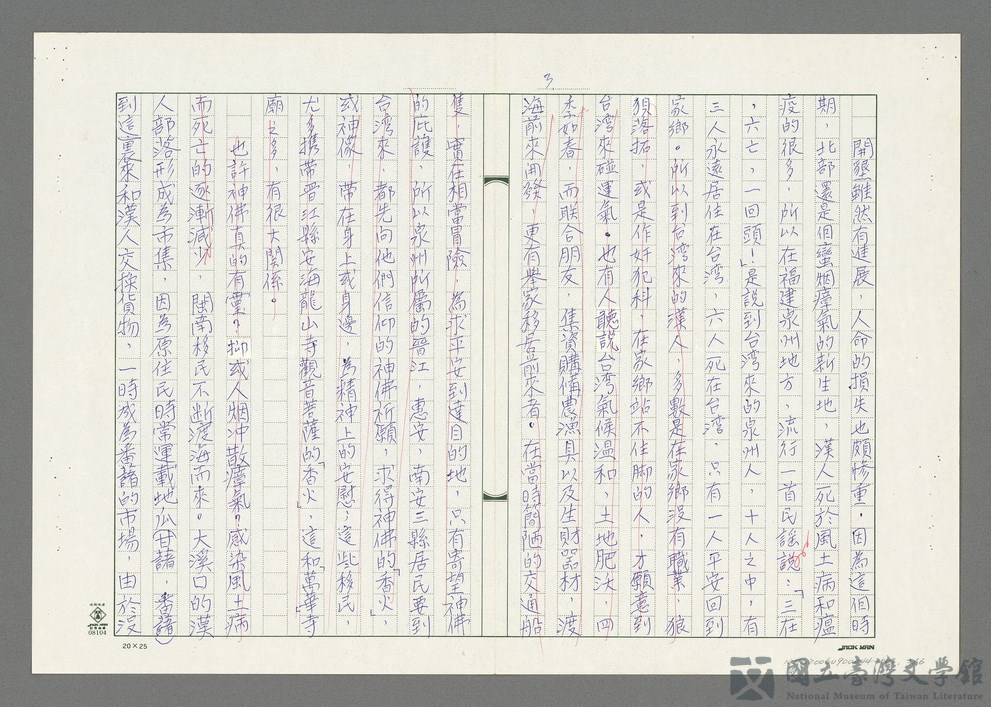 3.
開狠雖然有進展，人命的損失也頗慘重。因為這個時
期，北部還是個蠻烟瘴氣的新生地，漢人死於風土病和瘟
疫的很多，所以在福建泉州地方，流行一首民謠說：「三在
，六亡，一回頭！」是說到台湾來的泉州人，十人之中，有
三人永遠居住在台湾，六人死在台湾，只有一人平安回到
家鄉。所以到台湾來的漢人，多數是在家鄉沒有職業，狼
狽落拓，或是作奸犯科，在家鄉站不住脚的人，才願意到
台湾來碰運氣。也有人聽説台湾氣候温和，土地肥沃，四
季如春，而联合朋友，集資購備農漁具以及生財器材，渡
海前來開發，更有舉家移居前來者。在當時簡陋的交通船
隻，實在相當冒險，為求平安到達目的地，只有寄望神佛
的庇護，所以泉州所屬的晉江，惠安，南安三縣居民要到
台湾來，都先向他們信仰的神佛祈願，求得神佛的「香火」，
或神像，帶在身上或身邊，為精神上的安慰；這些移民，
尤多携帶晋江縣安海龍山寺觀音菩薩的「香火」，這和「萬華寺
廟之多」，有很大関係。
也許神佛真的有靈？抑或人烟冲散瘴氣？感染風土病
而死亡的逐漸減少，閩南移民不断渡海而來。大溪口的漢
人部落形成為市集，因為原住民時常運載地瓜甘藷，（番藷）
到這裏來和漢人交換貨物，一時成為番藷的市場，由於没
08104
20×25
JACK MAN
國立臺灣文學館
National Museum of Taiwan Literature